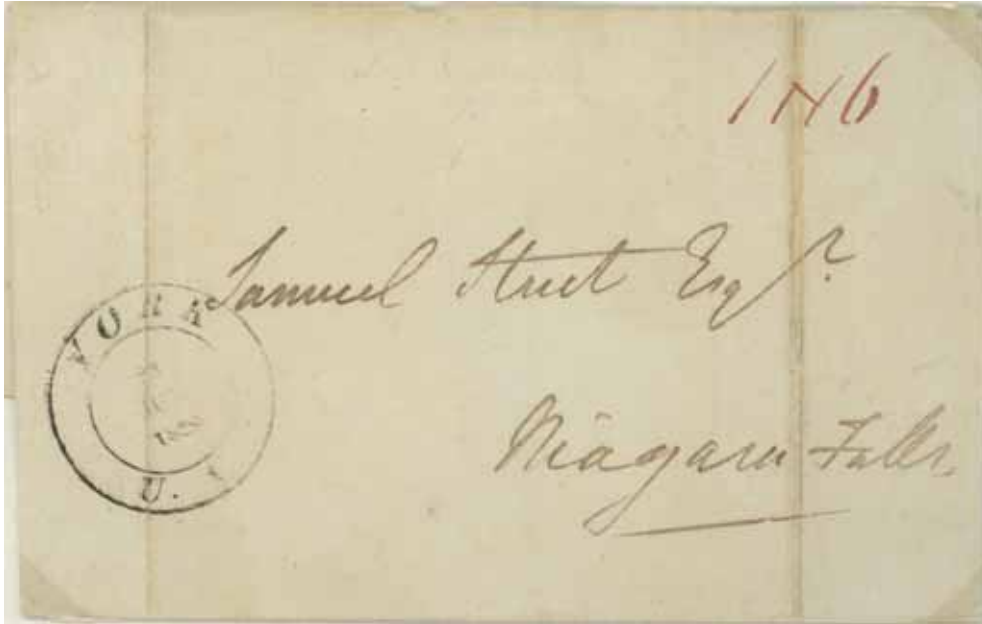 1 N 6
Samuel Street Esqr.
Niagara Falls.
YORK
U.